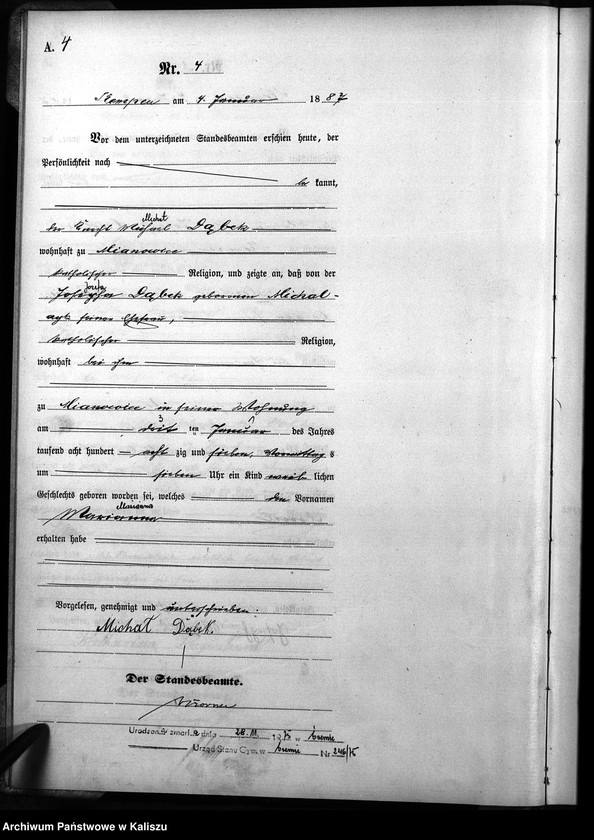 A. 4
Nr. 4
am 4. Januar 1887
Vor dem unterzeichneten Standesbeamten erschien heute, der
Persönlichkeit nach
be kannt,
Michał
der Knecht Michael Dąbek
wohnhaft zu Mianowice
katholischer Religion, und zeigte an, daß von der
Josepha Dąbek geborenen Michal-
seiner Ehefrau,
katholischer Religion,
wohnhaft bei ihm
zu Mianowice in seiner Wohnung
3
am drit ten Januar des Jahres
tausend acht hundert acht zig und sieben, Vormittag s
um sieben Uhr ein Kind weib lichen
Geschlechts geboren worden sei, welches den Vornamen
Marianna
Marianna
erhalten habe
Vorgelesen, genehmigt und unterschrieben.
Michał Dąbek.
Der Standesbeamte.
28.11. 19 75 w
Urząd Stanu Cyw. w Nr 246/75
Archiwum Państwowe w Kaliszu